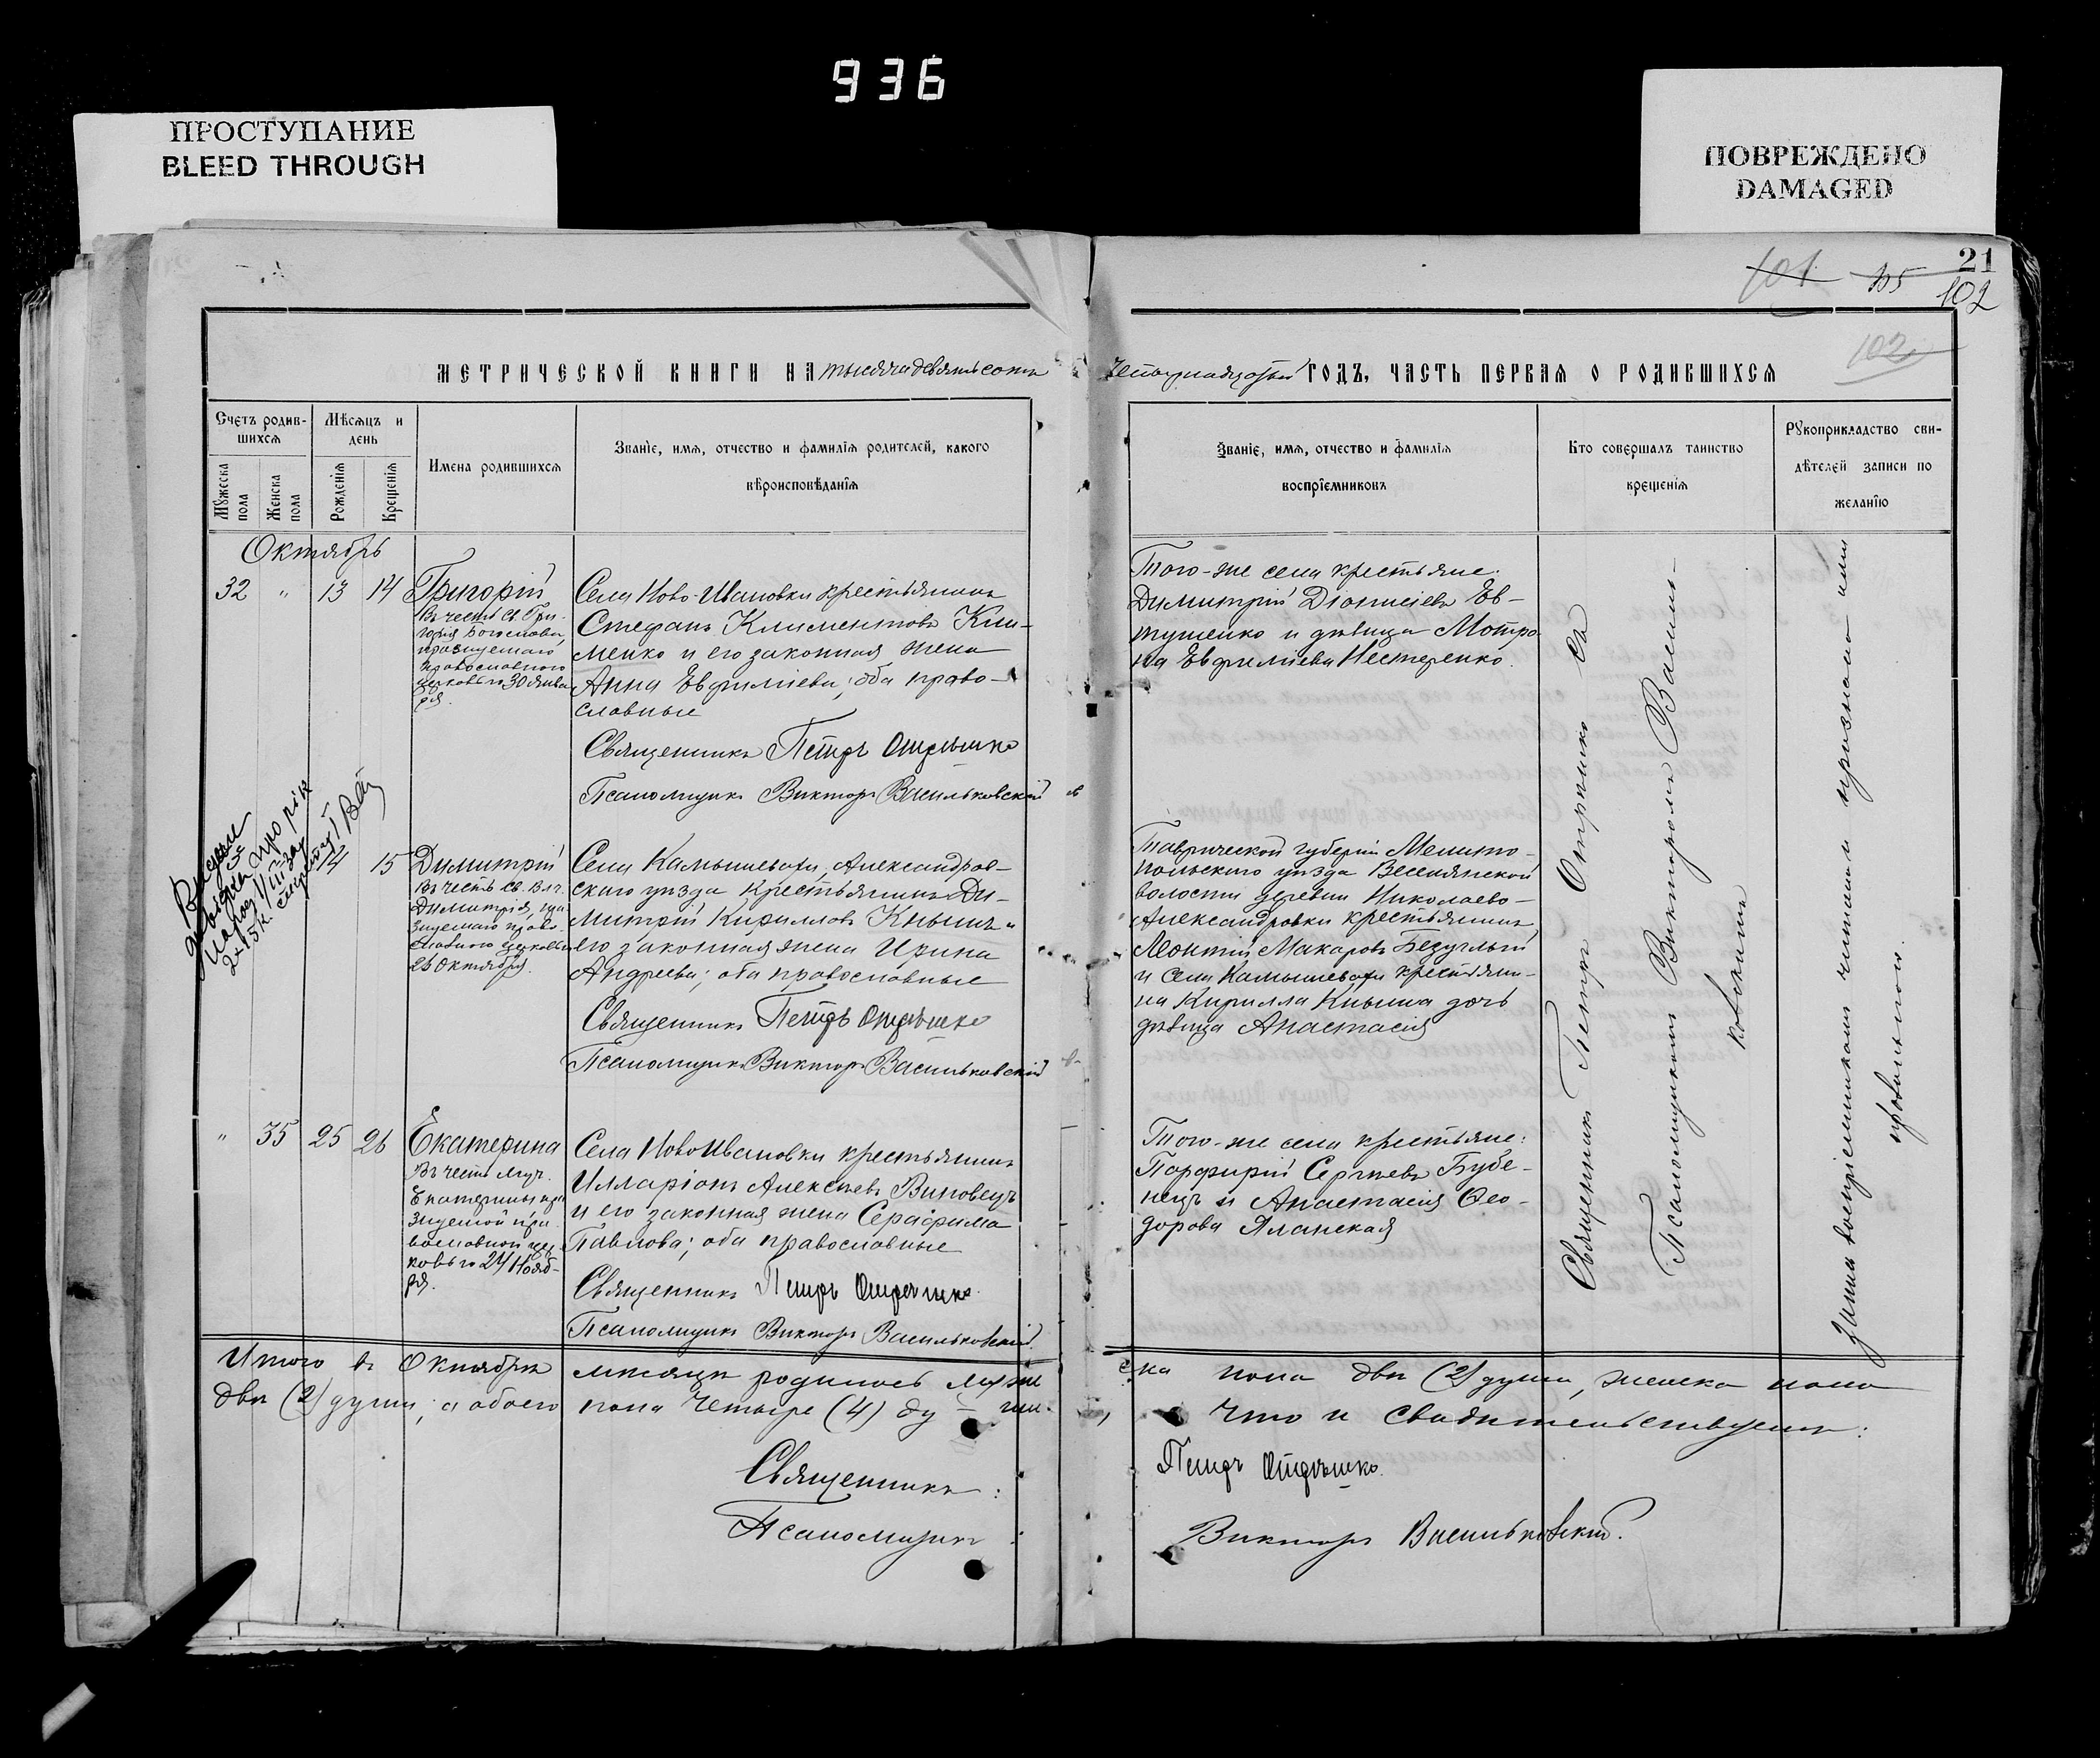 936
ПРОСТУПАНИЕ
BLEED THROUGH
ПОВРЕЖДЕНО
DAMAGED
21
101 105 102
102
МЕТРИЧЕСКОЙ КНИГИ НА тысяча девятьсотъ четырнадцатый ГОДЪ, ЧАСТЬ ПЕРВАЯ О РОДИВШИХСЯ
Счетъ родив-
шихся
Мужеска пола
Женска пола
Мѣсяцъ и
день
Рожденія
Крещенія
Имена родившихся
Званіе, имя, отчество и фамилія родителей, какого
вѣроисповѣданія
Званіе, имя, отчество и фамилія
воспріемниковъ
Кто совершалъ таинство
крещенія
Рукоприкладство сви-
дѣтелей записи по
желанію
Октябрь
32 " 13 14
Григорій
Въ честь Св. Гри-
горія Богослова,
празднуемаго
православною
церковью 30 Янва
ря.
Села Ново-Ивановки крестьянинъ
Стефанъ Климентовъ Кли-
менко и его законная жена
Анна Евфиміева; оба право-
славные
Священникъ Петръ Отрѣшко
Псаломщикъ Викторъ Васильковскій
Того-же села крестьяне:
Димитрій Діонисіевъ Ев-
тушенко и дѣвица Мотро-
на Евфиміева Нестеренко.
14 15
Димитрій
Въ честь Св. Влч.
Димитрія,
26 Октября.
Села Камышевахи, Александров-
скаго уѣзда крестьянинъ Ди-
митрій Кирилловъ Кнышъ и
его законная жена Ирина
Андреева; оба православные
Священникъ Петръ Отрѣшко
Псаломщикъ Викторъ Васильковскій
Таврической губерніи Мелито-
польскаго уѣзда Веселянской
волости деревни Николаево-
Александровки крестьянинъ
Леонтій Макаровъ Безуглый
и села Камышевахи крестьяни-
на Кирилла Кныша дочь
дѣвица Анастасія
" 35 25 26
Екатерина
Въ честь Муч.
Екатерины пра
зднуемой пра
вославной цер-
ковью 24 Нояб-
ря.
Села Ново-Ивановки крестьянинъ
Илларіонъ Алексѣевъ Виновецъ
и его законная жена Серафима
Павлова; оба православные
Священникъ Петръ Отрѣшко
Псаломщикъ Викторъ Васильковскій
Того-же села крестьяне:
Порфирій Сергѣевъ Бубе-
нецъ и Анастасія Ѳео-
дорова Яланская
Священникъ Петръ Отрѣшко съ
Псаломщикомъ Викторомъ Василь-
ковскимъ
Запись воспріемниками читана и признана ими
правильною.
Итого въ Октябрѣ мѣсяцѣ родилось муже ска пола двѣ (2) души, женска пола
двѣ (2) души, а обоего пола четыре (4) ду - ши. Что и свидѣтельствуемъ:
Священникъ: Петръ Отрѣшко.
Псаломщикъ: Викторъ Васильковскій.